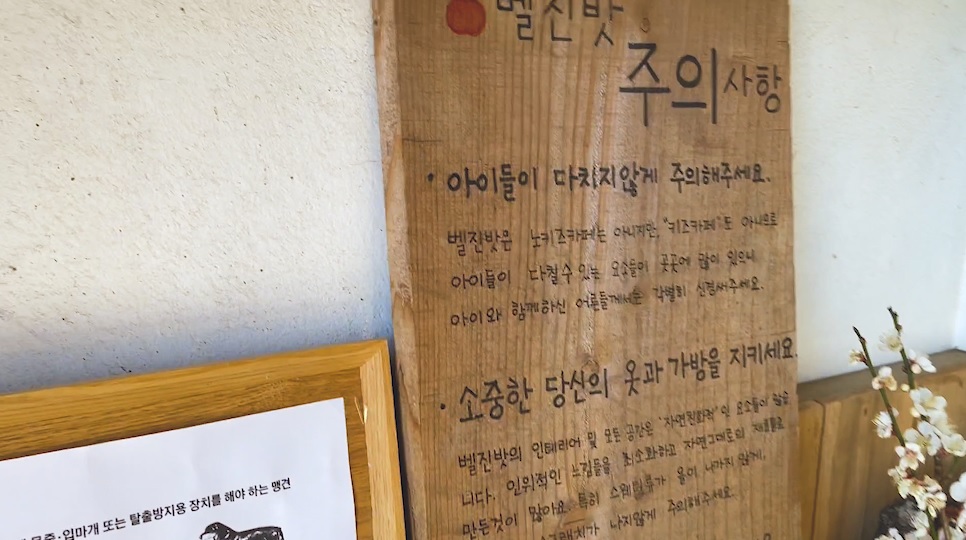 벨진밧
주의사항
· 아이들이 다치지않게 주의해주세요.
벨진밧은 노키즈카페는 아니지만, "키즈카페"도 아니므로
아이들이 다칠수 있는 요소들이 곳곳에 많이 있으니
아이와 함께하신 어른들께서는 각별히 신경써주세요.
· 소중한 당신의 옷과 가방을 지키세요.
벨진밧의 인테리어 및 모든 공간은 "자연친화적"인 요소들이 많습
니다. 인위적인 느낌들을 최소화하고 자연그대로의 재료들로
만든것이 많아요. 특히 스웨터류가 올이 나가지 않게,
나지않게 주의해주세요.
입마개 또는 탈출방지용 장치를 해야 하는 맹견